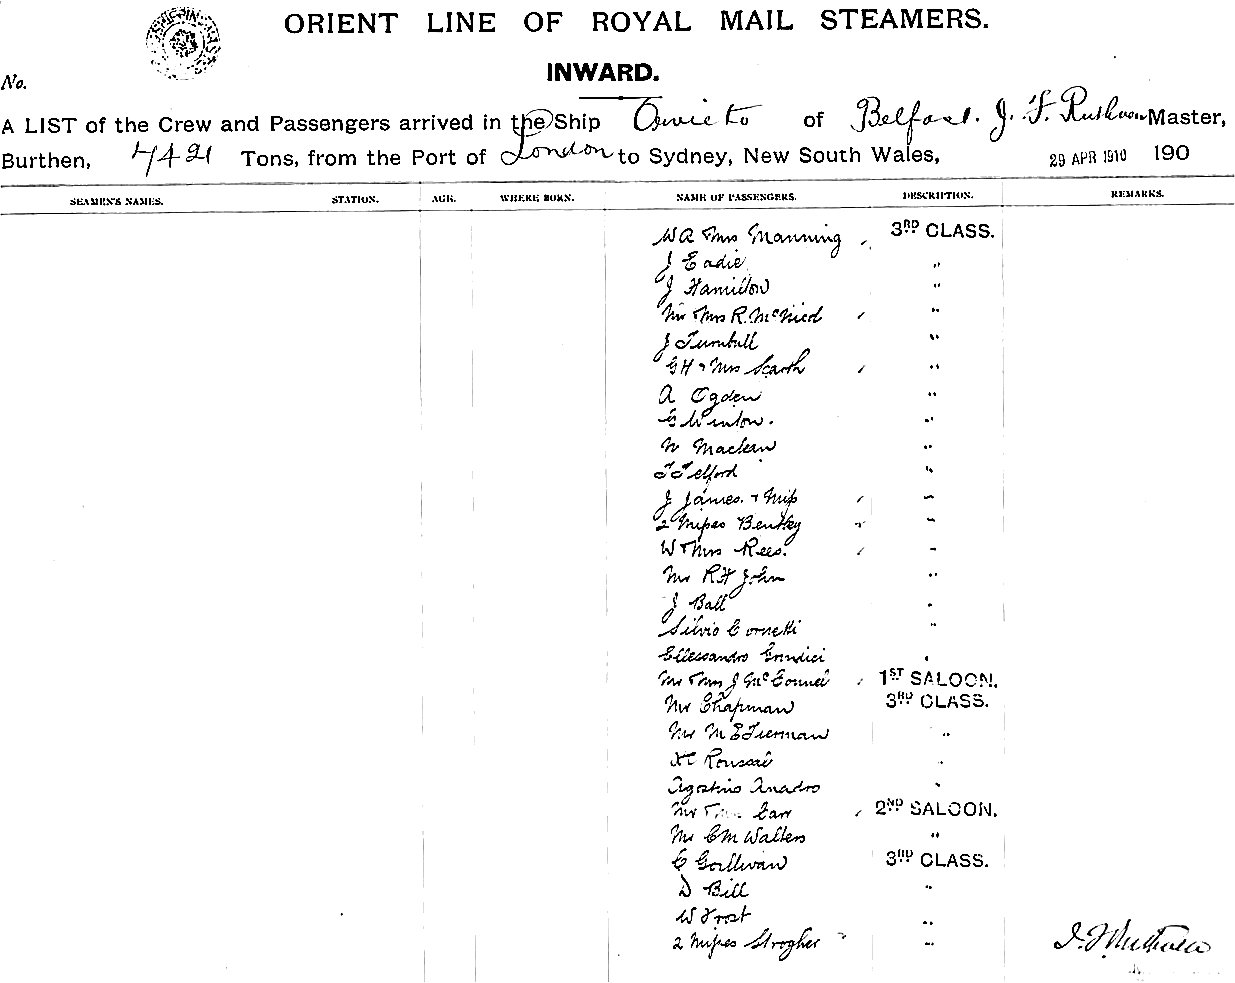 ORIENT LINE OF ROYAL MAIL STEAMERS.
INWARD.
No.
A LIST of the Crew and Passengers arrived in the Ship Orvieto of Belfast. J. F. Ruthven Master,
Burthen, 7421 Tons, from the Port of London to Sydney, New South Wales, 29 APR 1910 190
SEAMEN'S NAMES. STATION. AGE. WHERE BORN. NAME OF PASSENGERS. DESCRIPTION. REMARKS.
W A & Mrs Manning 3RD CLASS.
J Eadie "
J Hamilton "
Mr & Mrs R. "
J Turnbull "
G H & Mrs Scarth "
A Ogden "
G Winton. "
W Maclean "
T Telford "
J James. & Miss "
2 Misses Bentley "
W & Mrs Rees. "
Mr R H John "
J Ball "
Silvio Cornelli "
"
Mr & Mrs J McConnel 1ST SALOON.
Mr Chapman 3RD CLASS.
Mr M E Tiernan "
"
Agatino "
Mr 2ND SALOON.
Mr C M Walters "
C 3RD CLASS.
D Bill "
W Frost "
2 Misses "
J. F. Ruthven